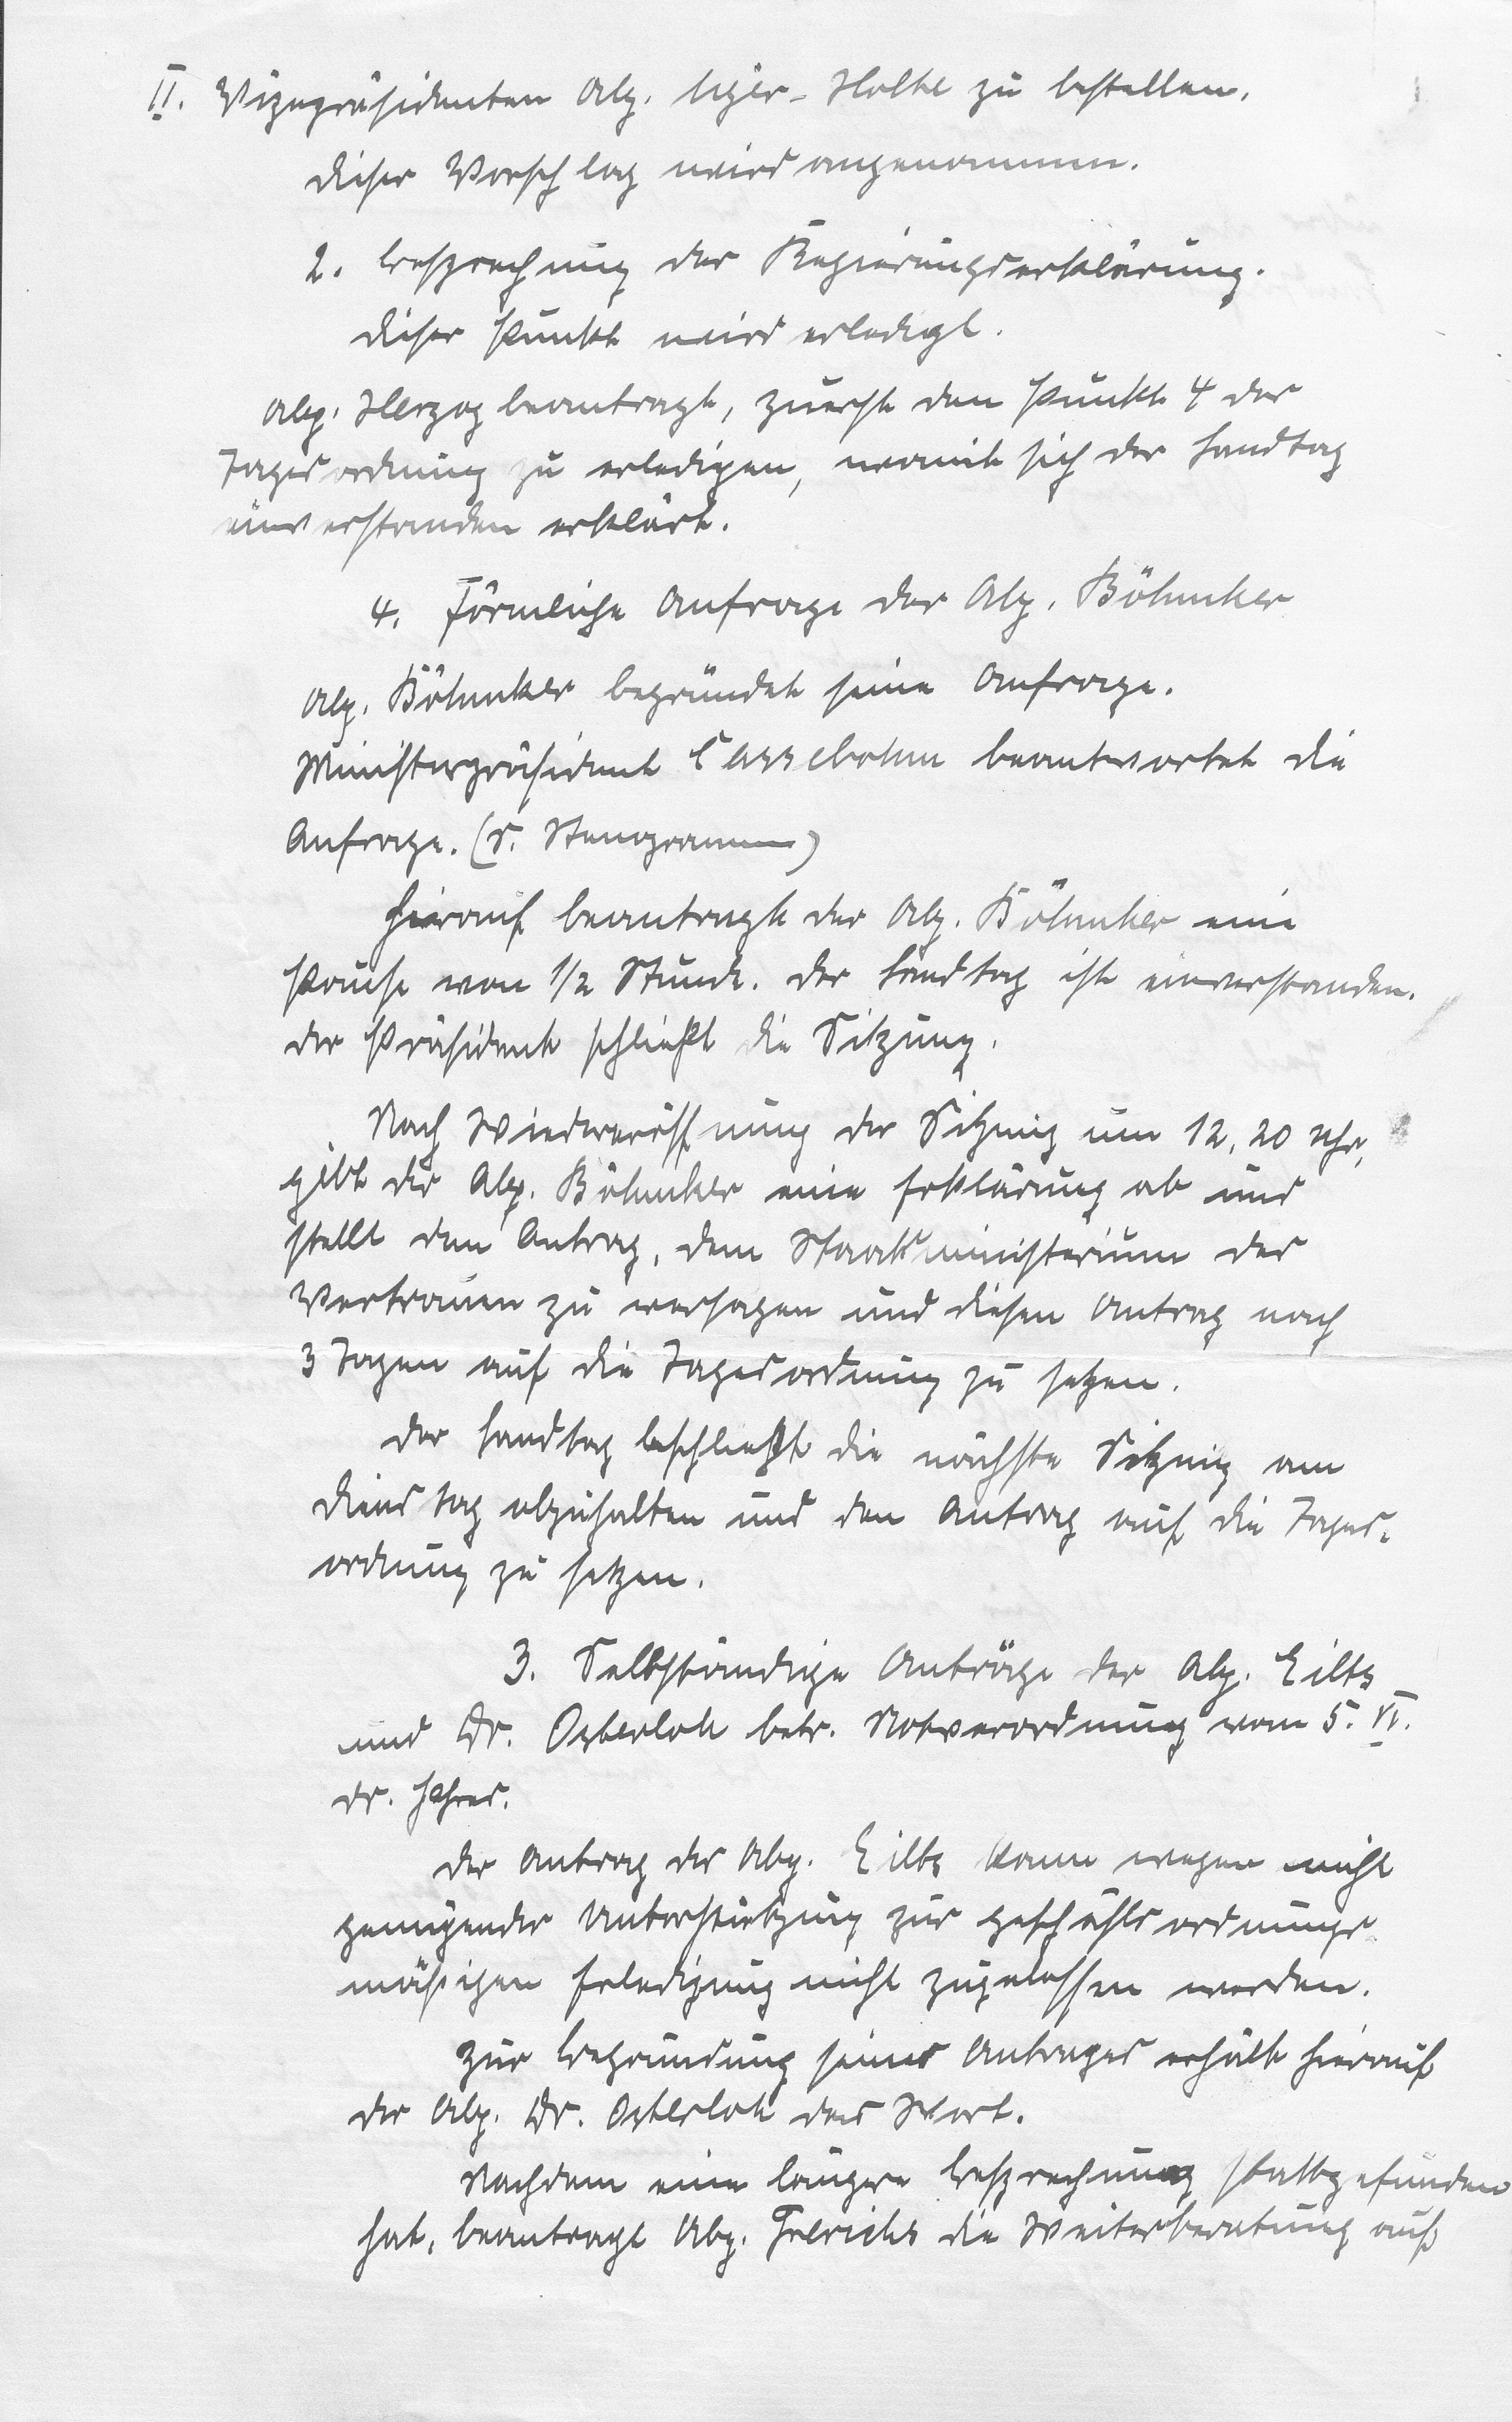 II. Vizepräsidenten Abg. Meyer-Holte zu bestellen.
Dieser Vorschlag wird angenommen.
2. Besprechung der Regierungserklärung.
Dieser Punkt wird erledigt.
Abg. Herzog beantragt, zuerst den Punkt 4 der
Tagesordnung zu erledigen, womit sich der Landtag
einverstanden erklärt.
4. Förmliche Anfrage des Abg. Böhmker
Abg. Böhmker begründet seine Anfrage.
Ministerpräsident Cassebohm beantwortet die
Anfrage. (S. Stenogramm)
Hierauf beantragt der Abg. Böhmker eine
Pause von 1/2 Stunde. Der Landtag ist einverstanden.
Der Präsident schließt die Sitzung.
Nach Wiedereröffnung der Sitzung um 12,20 Uhr,
gibt der Abg. Böhmker eine Erklärung ab und
stellt den Antrag, dem Staatsministerium das
Vertrauen zu versagen und diesen Antrag nach
3 Tagen auf die Tagesordnung zu setzen.
Der Landtag beschließt die nächste Sitzung am
Dienstag abzuhalten und den Antrag auf die Tages-
ordnung zu setzen.
3. Selbständige Anträge der Abg. Eilts
und Dr. Osterloh betr. Notverordnung vom 5. VI.
ds. Jahres.
Der Antrag des Abg. Eilts kann wegen nicht
genügender Unterstützung zur geschäftsordnungs-
mäßigen Erledigung nicht zugelassen werden.
Zur Begründung seines Antrages erhält hierauf
der Abg. Dr. Osterloh das Wort.
Nachdem eine längere Besprechung stattgefunden
hat, beantragt Abg. Frerichs die Weiterberatung auf